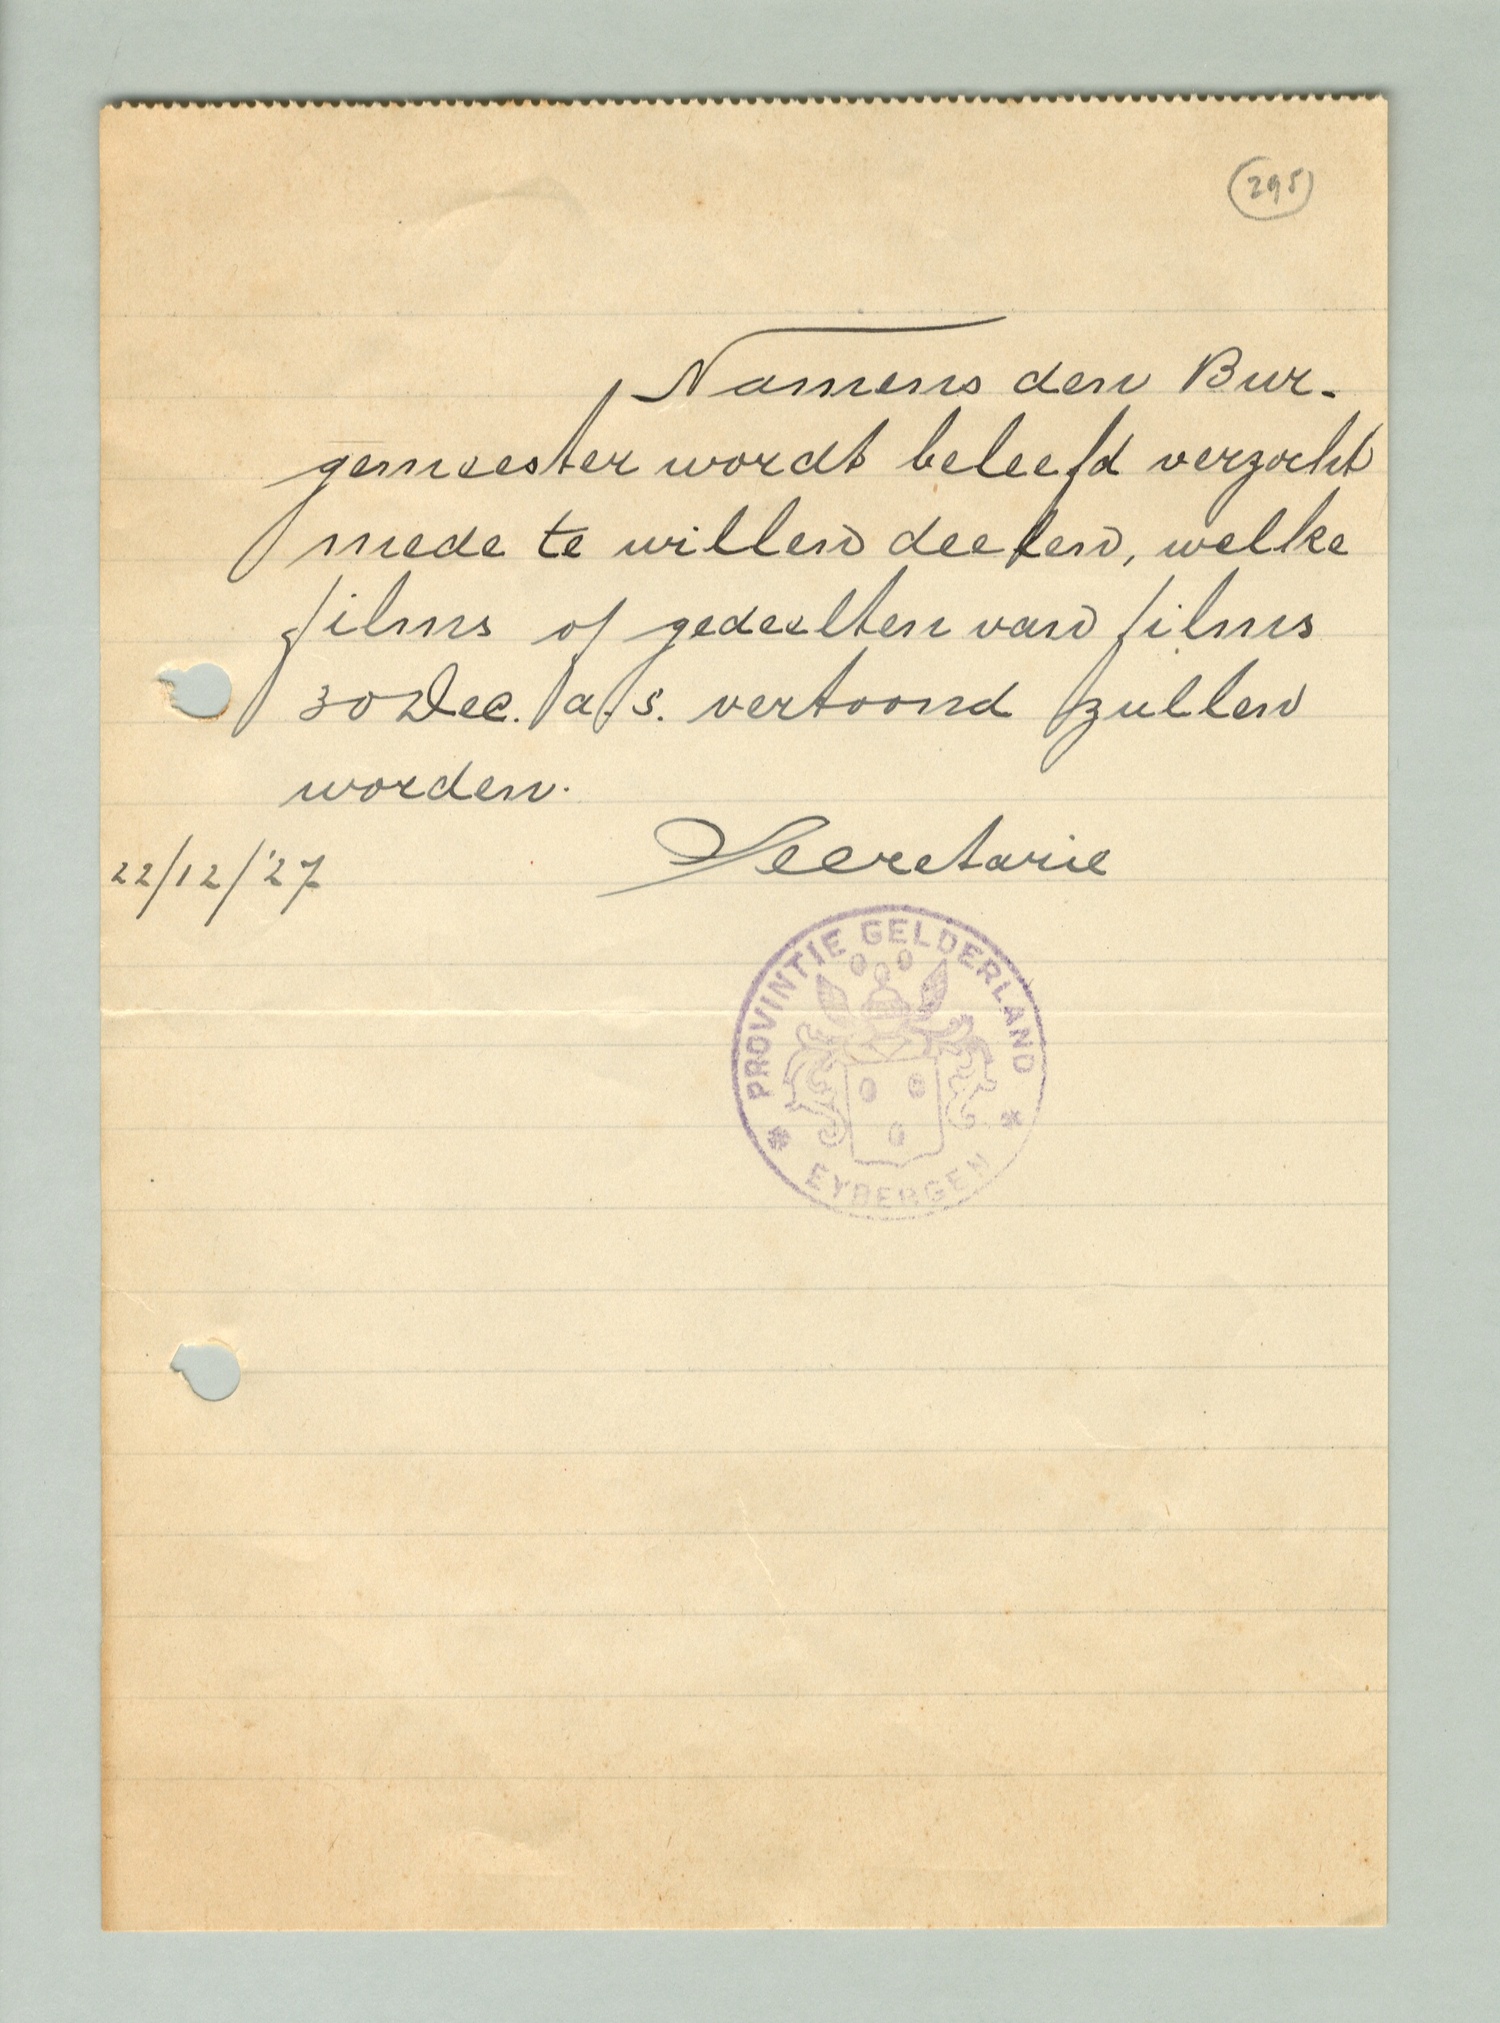 295
Namens den Bur-
gemeester wordt beleefd verzocht
mede te willen deelen, welke
films of gedeelten van films
30 Dec. a.s. vertoond zullen
worden.
22/12/'27 Secretarie
PROVINTIE GELDERLAND
* EYBERGEN *